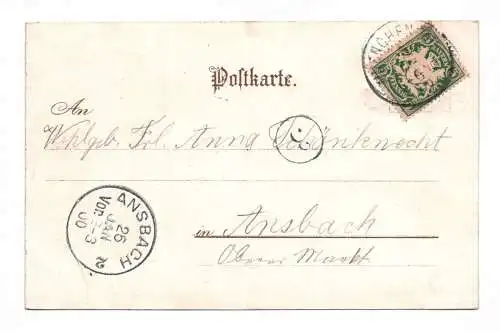 NCHEN
Postkarte.
An
Wohlgeb. Frl. Anna Schönknecht
in Ansbach
Oberer Markt
ANSBACH 2
26
JAN
Vor. 2-3
00